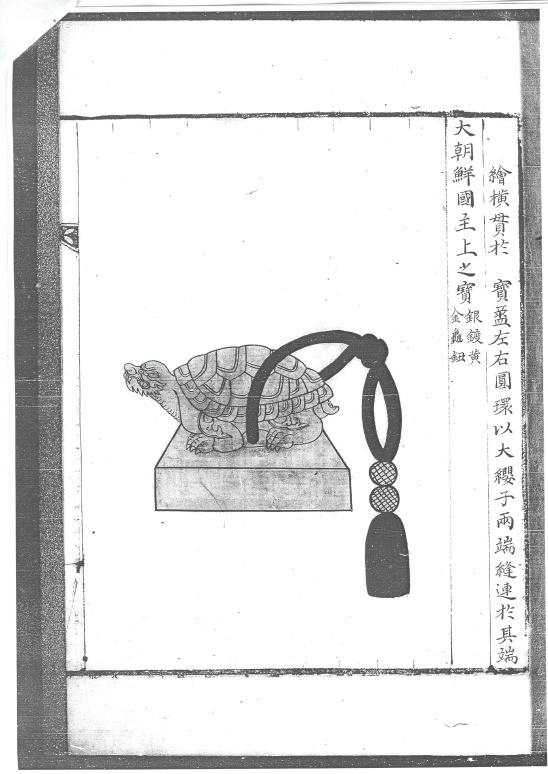 繪横貫於　寶盝左右圓環以大纓子兩端縫連於其端
大朝鮮國主上之寶銀鍍黄
金龜鈕